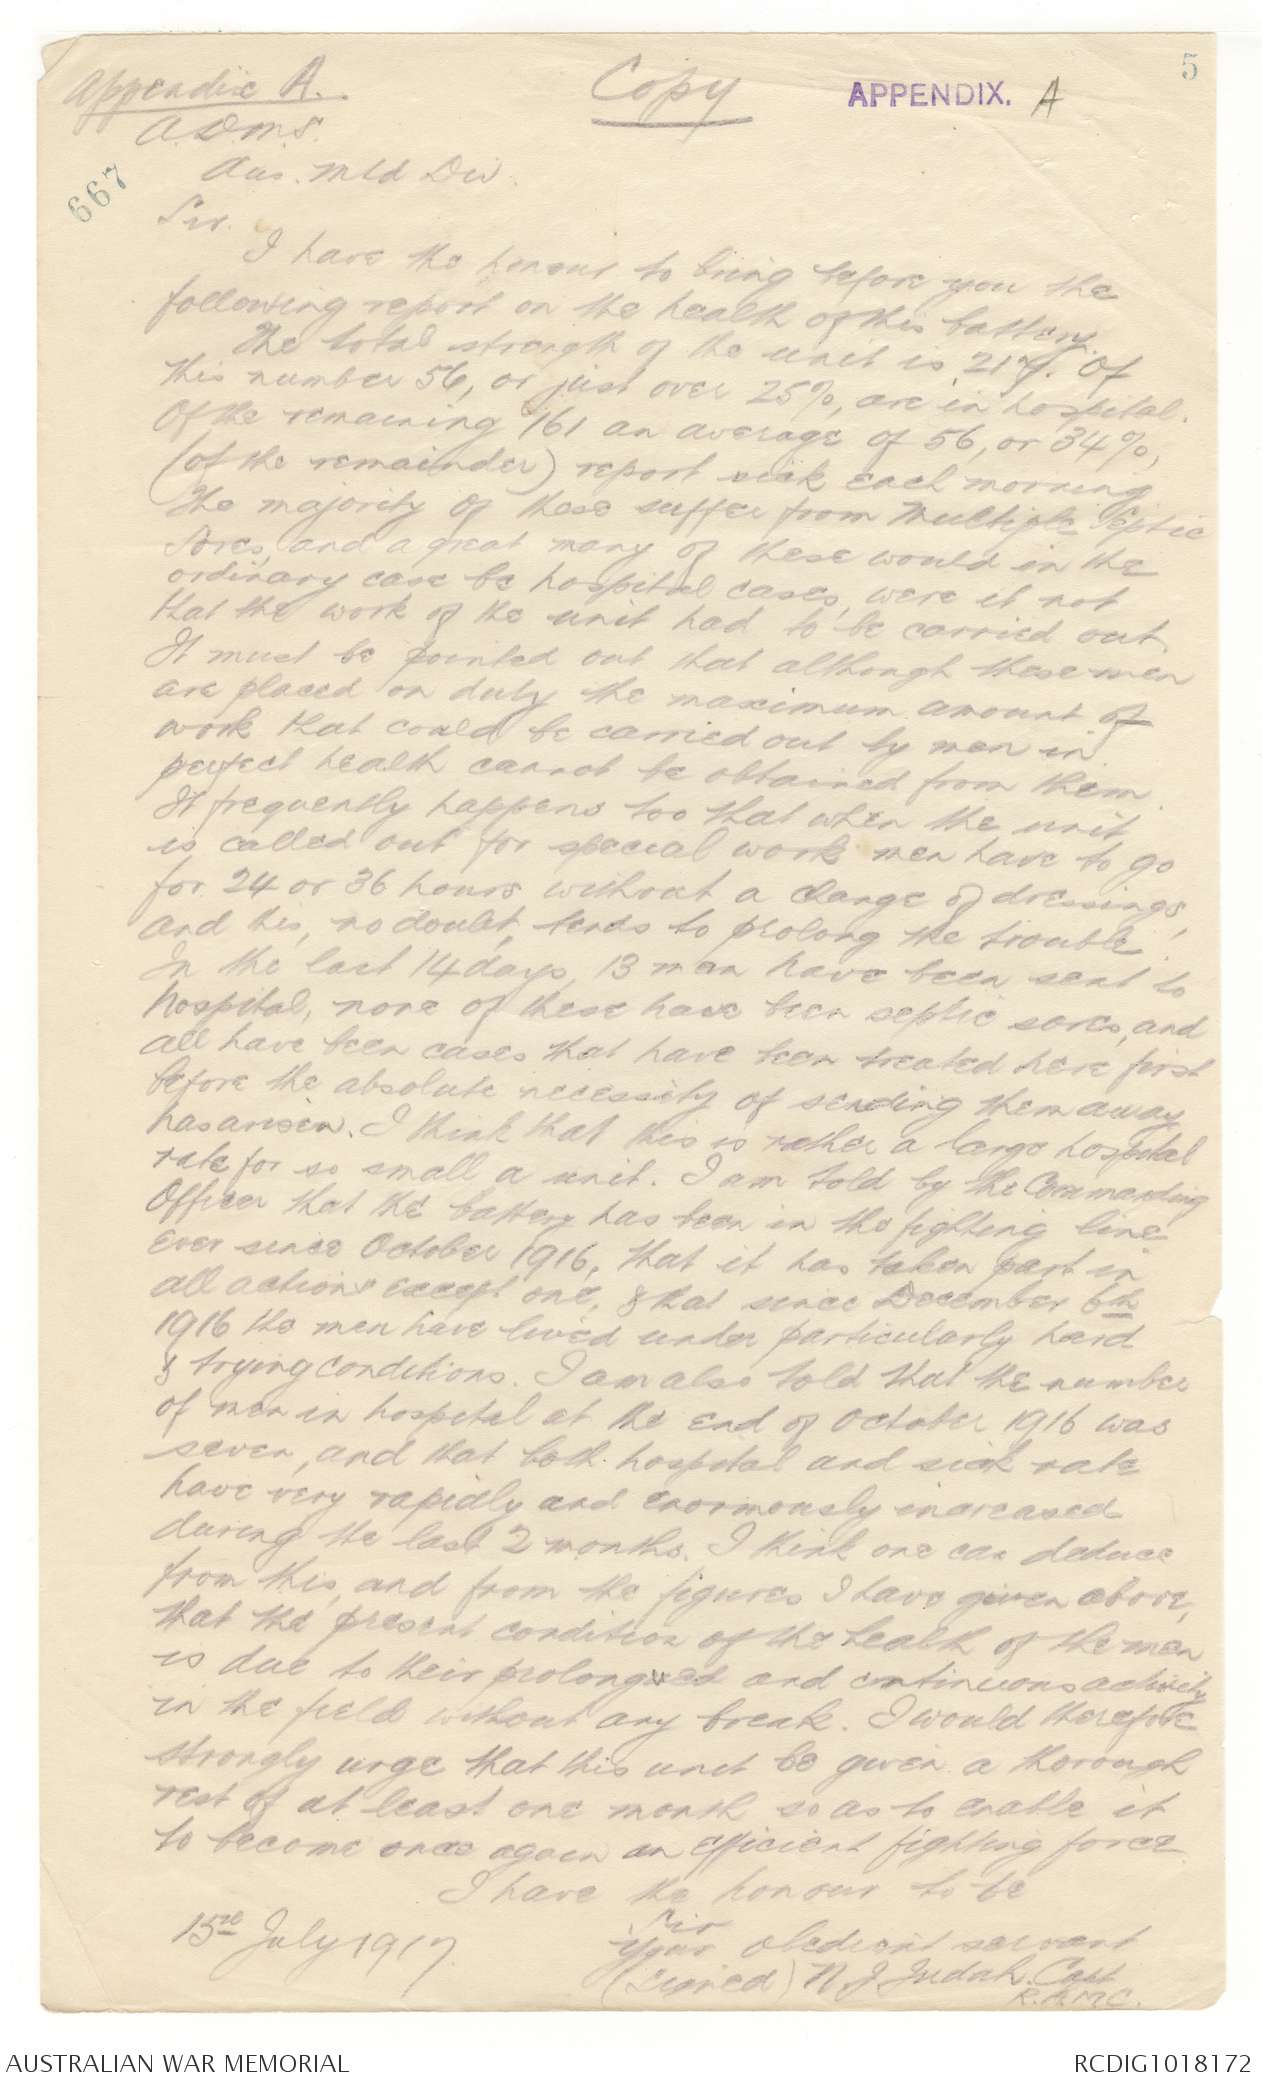 5
Appendix A.
Copy
APPENDIX. A
A.D.M.S.
Aus. Mtd Div.
667
Sir.
I have the honour to bring before you the
following report on the health of this battery.
The total strength of the unit is 217. Of
this number 56, or just over 25%, are in hospital.
Of the remaining 161 an average of 56, or 34%,
(of the remainder) report sick each morning
The majority of these suffer from Multiple Septic
Sores, and a great many of these would in the
ordinary case be hospital cases, were it not
that the work of the unit had to be carried out.
It must be pointed out that although these men
are placed on duty the maximum amount of
work that could be carried out by men in
perfect health cannot be obtained from them.
It frequently happens too that when the unit
is called out for special work men have to go
for 24 or 36 hours without a change of dressings,
and this, no doubt, tends to prolong the trouble.
In the last 14 days, 13 men have been sent to
hospital, none of these have been septic sores, and
all have been cases that have been treated here first
before the absolute necessity of sending them away
has arisen. I think that this is rather a large hospital
rate for so small a unit. I am told by the Commanding
Officer that the battery has been in the fighting line
ever since October 1916, that it has taken part in
all actions except one, & that since December 6th
1916 the men have lived under particularly hard
& trying conditions. I am also told that the number
of men in hospital at the end of October 1916 was
seven, and that both hospital and sick rate
have very rapidly and enormously increased
during the last 2 months. I think one can deduce
from this, and from the figures I have given above,
that the present condition of the health of the men
is due to their prolonged and continuous activity
in the field without any break. I would therefore
strongly urge that this unit be given a thorough
rest of at least one month so as to enable it
to become once again an efficient fighting force
I have the honour to be
Sir
15th July 1917.
Your obedient servant
(signed) N J Judah. Capt
R.A.M.C.
AUSTRALIAN WAR MEMORIAL
RCDIG1018172